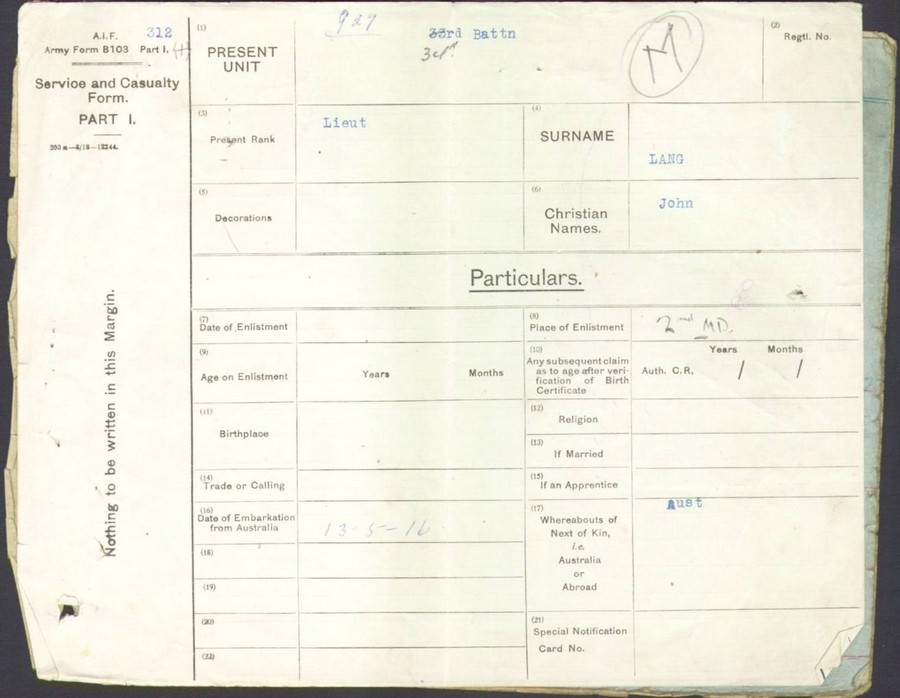 A.I.F. 312
Army Form B103 Part I.
Service and Casualty
Form.
PART I.
200 m—8/18—12244.
Nothing to be written in this Margin.
(1)
PRESENT
UNIT
927
33rd Battn
34th
M
(2)
Regtl. No.
(3)
Present Rank
Lieut
(4)
SURNAME
LANG
(5)
Decorations
(6)
Christian
Names.
John
Particulars.
(7)
Date of Enlistment
(8)
Place of Enlistment
2nd MD.
(9)
Age on Enlistment
Years Months
(10)
Any subsequent claim
as to age after veri-
fication of Birth
Certificate
Years Months
Auth. C.R. / /
(11)
Birthplace
(12)
Religion
(13)
If Married
(14)
Trade or Calling
(15)
If an Apprentice
(16)
Date of Embarkation
from Australia
13-5-16
(17)
Whereabouts of
Next of Kin,
i.e.
Australia
or
Abroad
Aust
(18)
(19)
(20)
(21)
Special Notification
Card No.
(22)